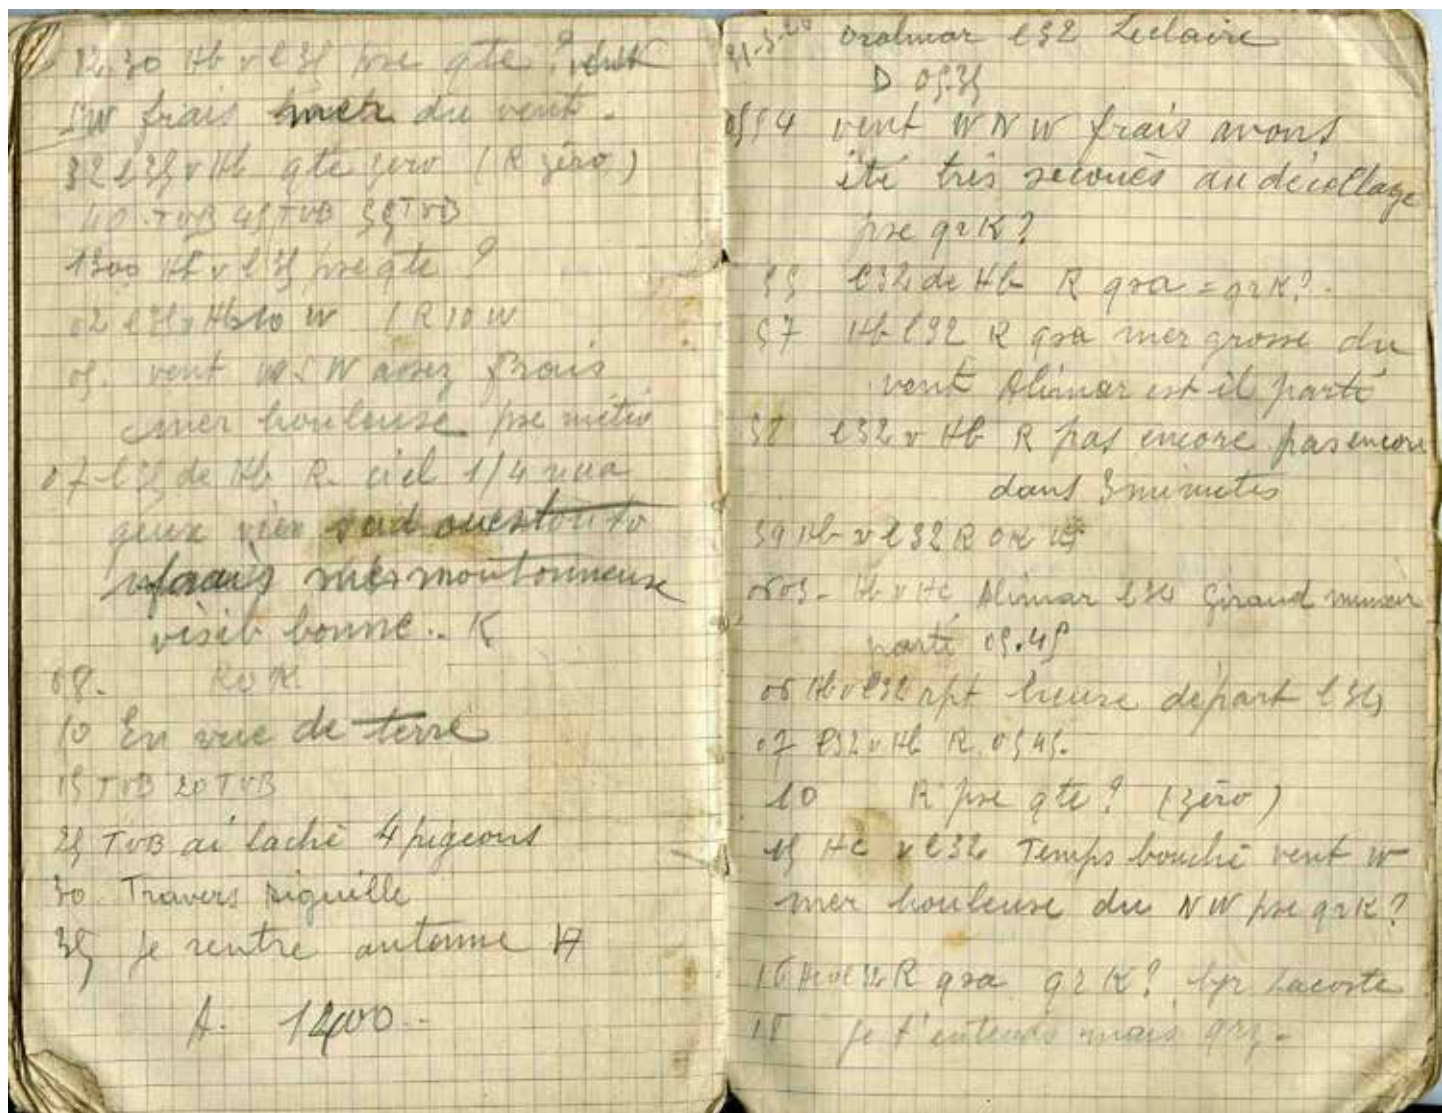 12.30 Hb v l35 pse qte ? vent
SW frais mer du vent.
32 l35 v Hb qte zero (R zéro)
40 TVB 45 TVB 55 TVB
1300 Hb v l35 pse qte ?
02 l35 v Hb 10 W (R 10 W
05. vent W.S.W assez frais
mer houleuse pse météo
07 l35 de Hb R. ciel 1/4 nua
geux sud ouest
frais mer moutonneuse
visib bonne .. K
08. R OK
10 En vue de terre
15 TVB 20 TVB
25 TVB ai laché 4 pigeons
30 Travers Aiguille
35 je rentre antenne
A. 1400..
31-3-20 l32 Leclaire
D 05.35
0554 vent WNW frais avons
été très secoués au décollage
pse qrK?
55 l32 de Hb R qsa = qrK?
57 Hb l32 R qsa mer grosse du
vent Alimar est il parti
58 l32 v Hb R pas encore pas encore
dans 3 minutes
59 Hb v l32 R OK
0605 - Hb v Hc Alimar l34 Giraud
parti 05.45
06 Hb v l32 rpt heure départ l34
07 l32 v Hb R 0545.
10 R pse qte ? (zéro)
15 Hc v l32 Temps bouché vent W
mer houleuse du NW pse qrK?
16 Hc v l32 R qsa qrK? Lacoste
18 je t'entends mais